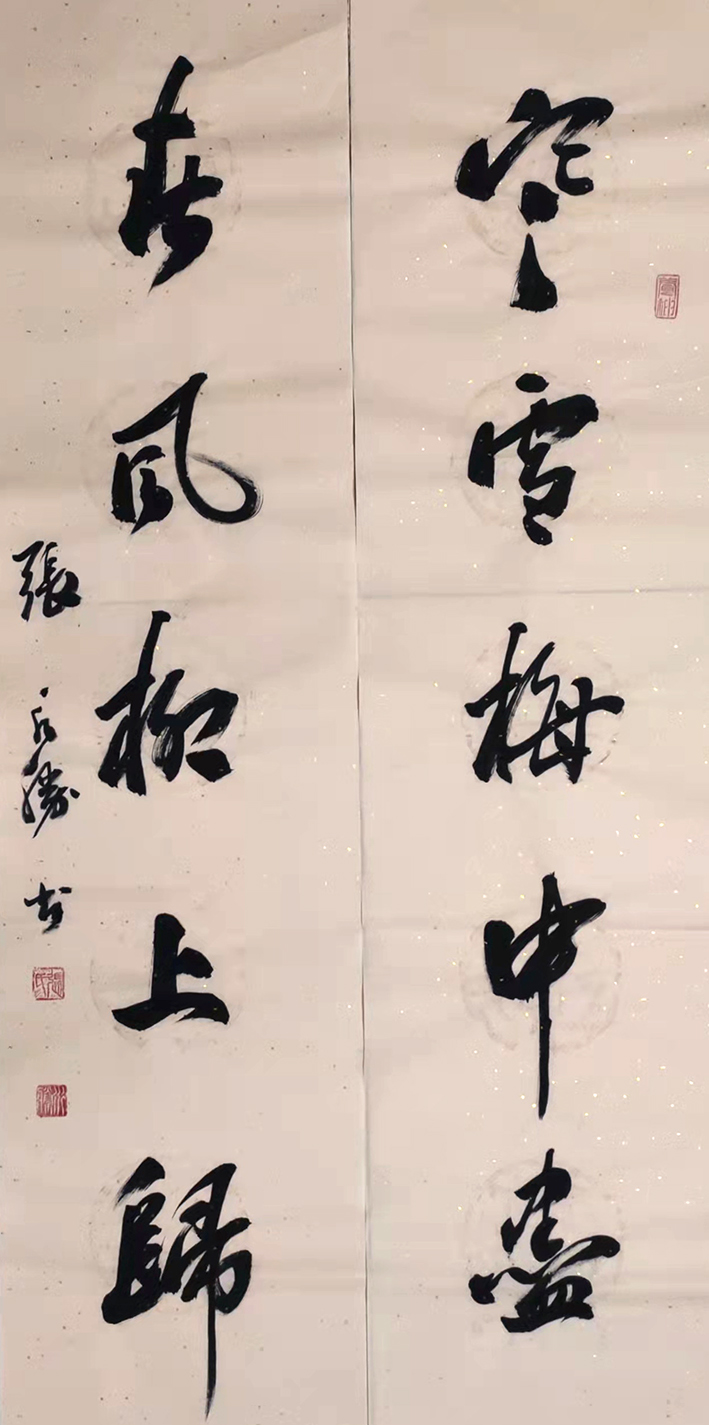 寒雪梅中盡
春風柳上歸
張永勝书